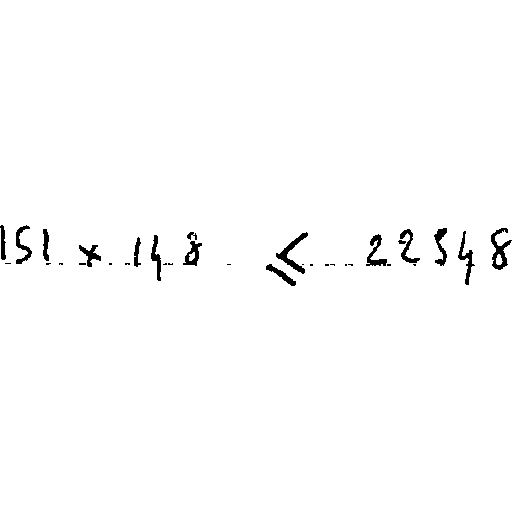 151 × 148 ⩽ 22548